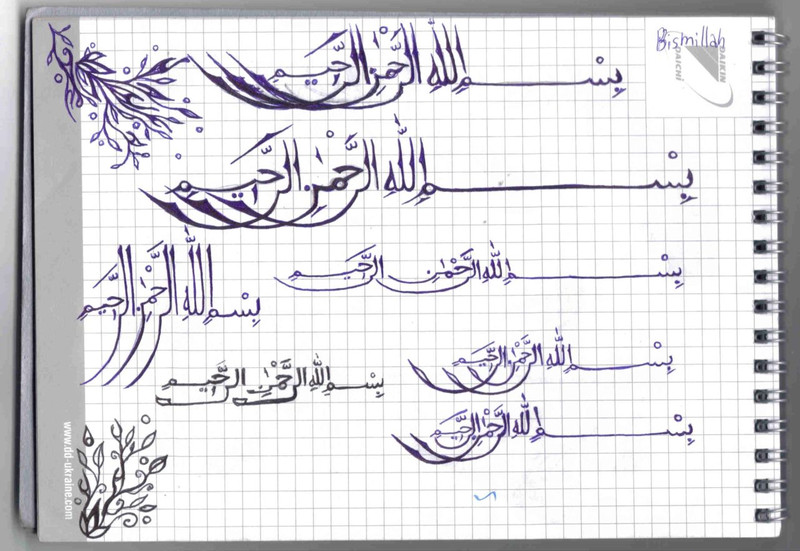 Bismillah
DAIKIN
DAICHI
بِسْمِ اللّٰهِ الرَّحْمٰنِ الرَّحِيمِ
بِسْمِ اللّٰهِ الرَّحْمٰنِ الرَّحِيمِ
بِسْمِ اللّٰهِ الرَّحْمٰنِ الرَّحِيمِ
بِسْمِ اللّٰهِ الرَّحْمٰنِ الرَّحِيمِ
بِسْمِ اللّٰهِ الرَّحْمٰنِ الرَّحِيمِ
بِسْمِ اللّٰهِ الرَّحْمٰنِ الرَّحِيمِ
بِسْمِ اللّٰهِ الرَّحْمٰنِ الرَّحِيمِ
www.dd-ukraine.com